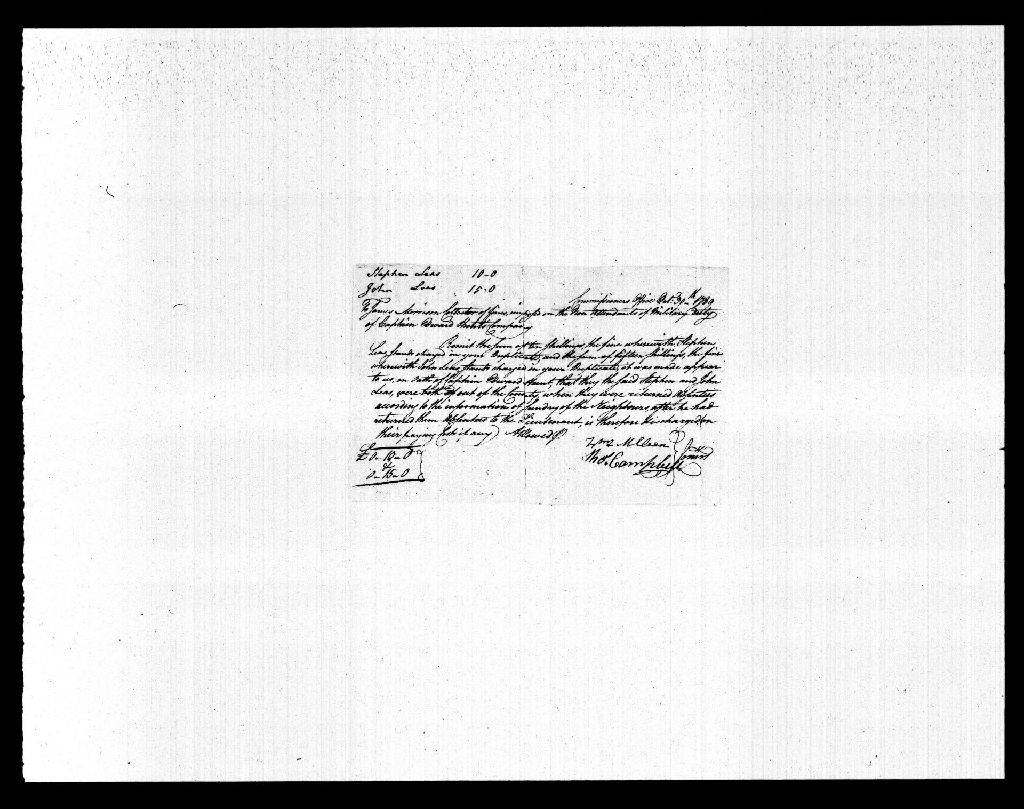 Stephen Leas 10-0
John Leas 15-0
Commissioners Office Octr. 31th 1789
To James Morrison Collector of fines, imposed on the Non Attendants of Military Duty
of Captain Edward Company
Remit the sum of ten shillings, the fine wherewith Stephen
Leas stands charged in your Duplicate, and the sum of fifteen shillings, the fine
wherewith John Leas, stands charged in your Duplicate, as was made appear
to us, on Oath of Captain Edward that they the said Stephen and John
Leas, were both out of the County, when they were returned Absentees
according to the information of sundry of the Neighbours, after he had
returned them Absentees to the Lieutenant, is therefore
their paying Cost if any Allowed
£ 0-10-0
&
0-15-0
McClean
Thos. Campbell
Commrs